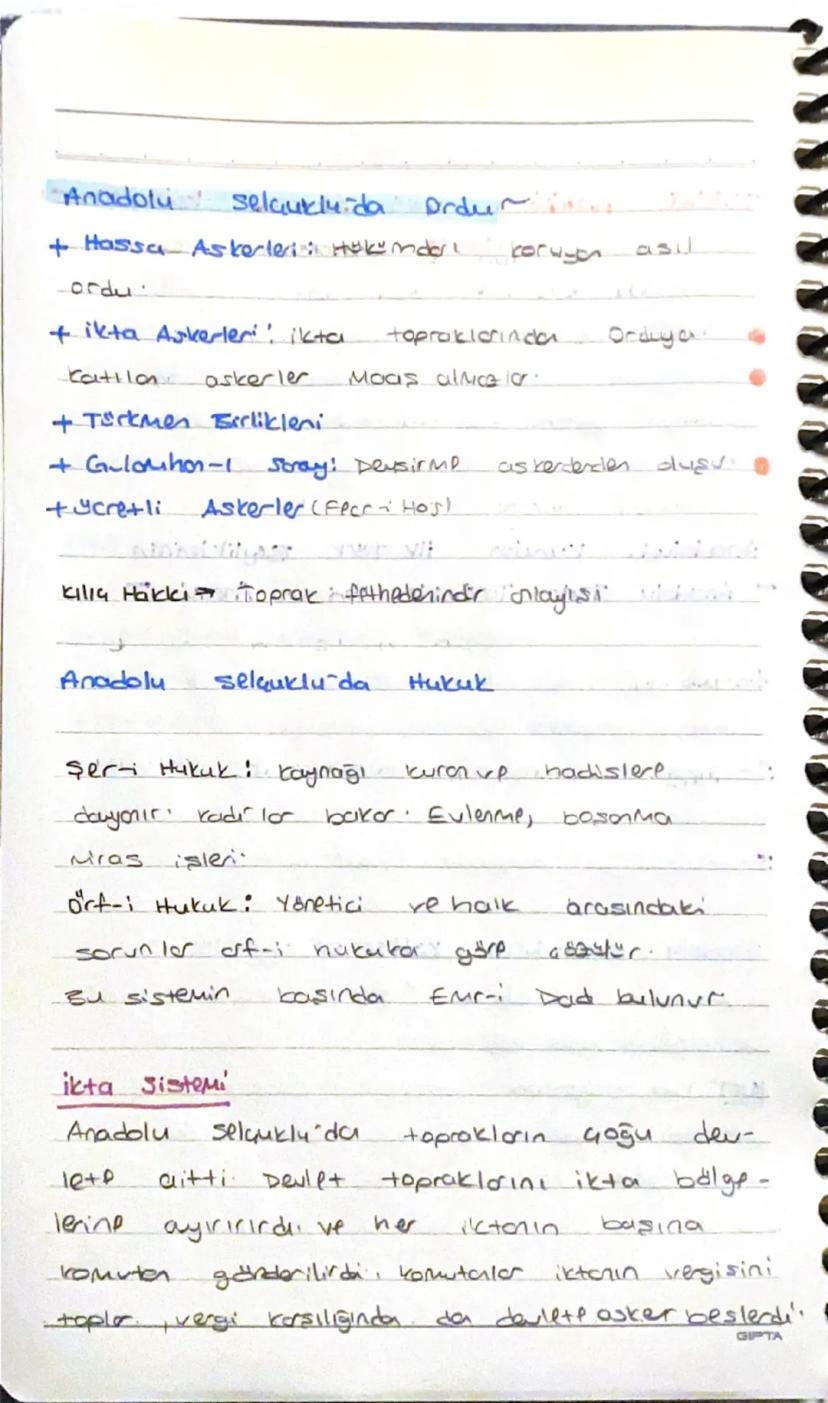 Anadolu Selçuklu'da Ordu
+ Hassa Askerleri: Hükümdarı koruyan asıl
ordu.
+ ikta Askerleri: ikta topraklarından Orduya
katılan askerler Maaş almazlar.
+ Türkmen Birlikleri
+ Gulamhan-ı Saray: Devşirme askerlerden oluşur.
+ Ücretli Askerler (Fecr-i Has)
Kılıç Hakkı → Toprak fethedenindir anlayışı
Anadolu Selçuklu'da Hukuk
Şer-i Hukuk: kaynağı kuran ve hadislere
dayanır. kadılar bakar. Evlenme, boşanma
miras işleri.
Örf-i Hukuk: Yönetici ve halk arasındaki
sorunlar örf-i hukuka göre çözülür.
Bu sistemin başında Emr-i Dad bulunur
ikta Sistemi
Anadolu Selçuklu'da toprakların çoğu dev-
lete aitti. Devlet topraklarını ikta bölge-
lerine ayırırırdı ve her iktanın başına
komutan gönderilirdi. komutanlar iktanın vergisini
toplar, vergi karşılığında da devlete asker beslerdi.
GIPTA